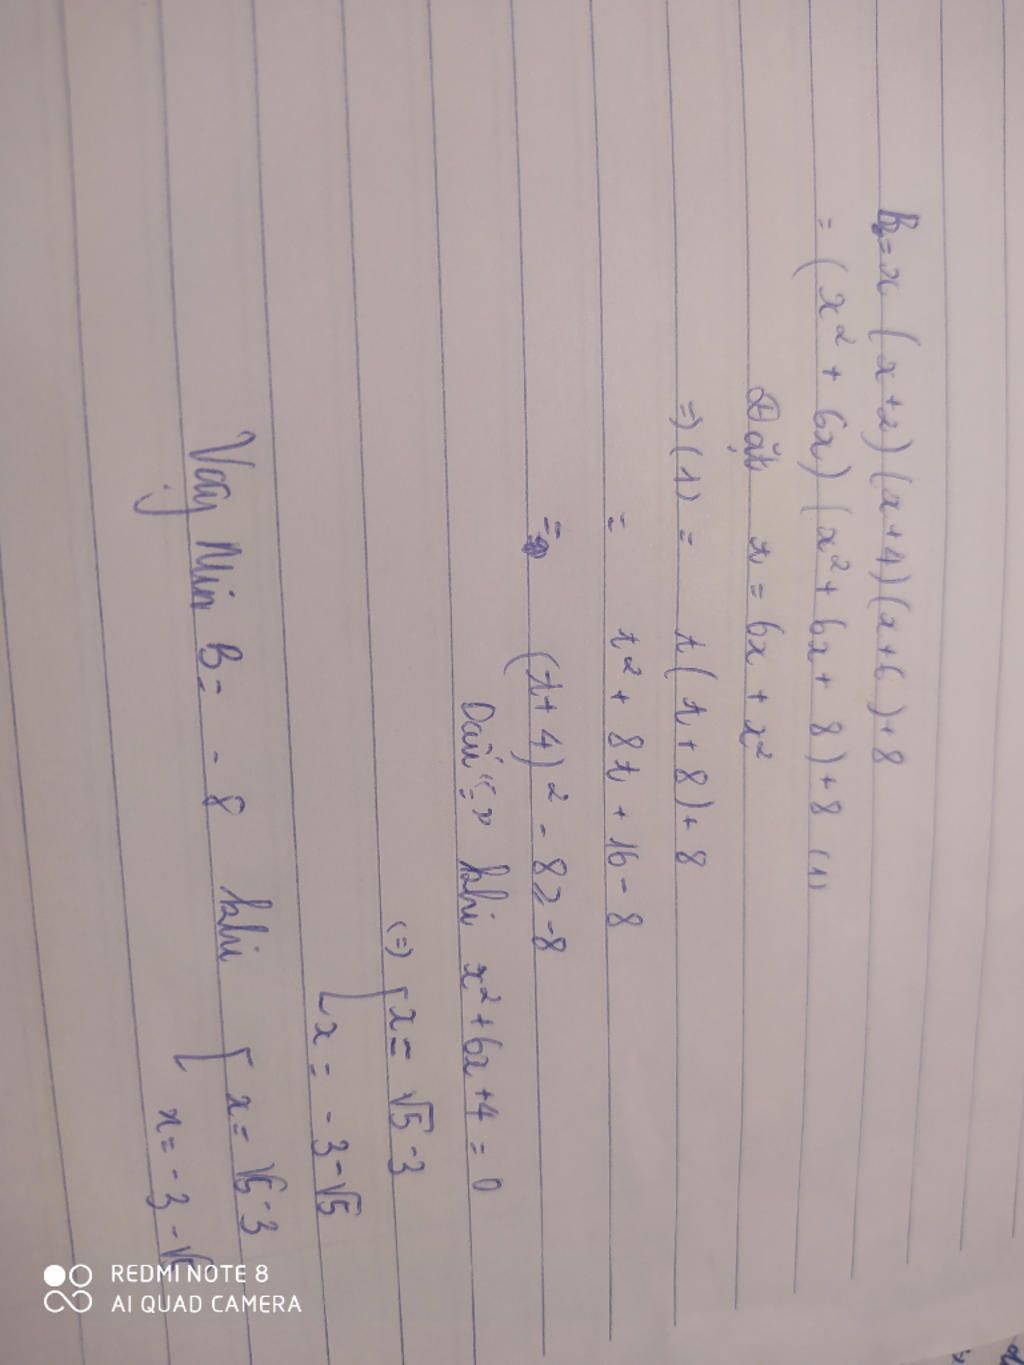 B = x (x+2)(x+4)(x+6)+8
= (x² + 6x) (x² + 6x + 8)+8 (1)
Đặt t = 6x + x²
=) (1) = t(t+8)+8
= t² + 8t + 16 - 8
= (t+4)² - 8 ≥ -8
Dấu "=" khi x² + 6x + 4 = 0
(=) [ x = √5 - 3
[ x = - 3 - √5
Vậy Min B = - 8 khi [ x = √5 - 3
[ x = - 3 - √5
REDMI NOTE 8
AI QUAD CAMERA